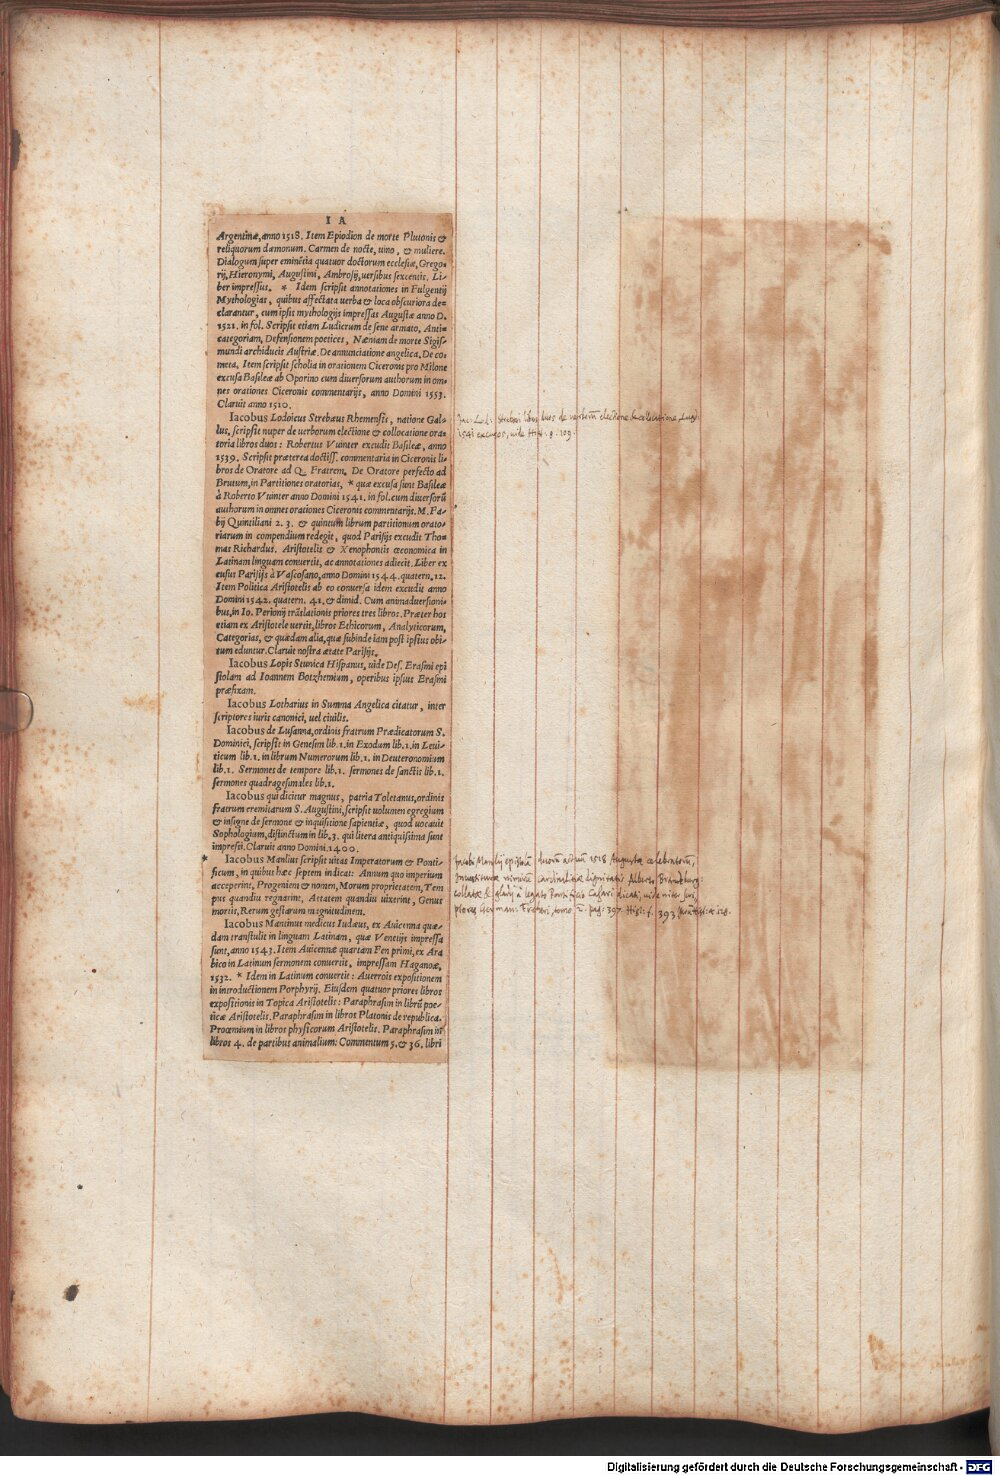 I A
Argentinæ, anno 1518. Item Epiodion de morte Plutonis &
reliquorum dæmonum. Carmen de nocte, uino, & muliere.
Dialogum super eminētia quatuor doctorum ecclesiæ, Grego=
rij, Hieronymi, Augustini, Ambrosij, uersibus sexcentis. Li=
ber impressus. * Idem scripsit annotationes in Fulgentij
Mythologias, quibus affectata uerba & loca obscuriora de=
clarantur, cum ipsis mythologijs impressas Augustæ anno D.
1521. in fol. Scripsit etiam Ludicrum de sene armato. Anti=
categoriam, Defensionem poetices, Næniam de morte Sigis=
mundi archiducis Austriæ. De annunciatione angelica. De co=
meta. Item scripsit scholia in orationem Ciceronis pro Milone
excusa Basileæ ab Oporino cum diuersorum authorum in om=
nes orationes Ciceronis commentarijs, anno Domini 1553.
Claruit anno 1510.
Iacobus Lodoicus Strebæus Rhemensis, natione Gal=
lus, scripsit nuper de uerborum electione & collocatione ora=
toria libros duos: Robertus Vuinter excudit Basileæ, anno
1539. Scripsit præterea doctiss. commentaria in Ciceronis li=
bros de Oratore ad Q. Fratrem. De Oratore perfecto ad
Brutum, in Partitiones oratorias, * quæ excusa sunt Basileæ
à Roberto Vuinter anno Domini 1541. in fol. cum diuersorū
authorum in omnes orationes Ciceronis commentarijs. M. Fa=
bij Quintiliani 2. 3. & quintum librum partitionum orato=
riarum in compendium redegit, quod Parisijs excudit Tho=
mas Richardus. Aristotelis & Xenophontis œconomica in
Latinam linguam conuertit, ac annotationes adiecit. Liber ex
cusus Parisijs à Vascosano, anno Domini 1544. quatern. 12.
Item Politica Aristotelis ab eo conuersa idem excudit anno
Domini 1542. quatern. 41. & dimid. Cum animaduersioni=
bus, in Io. Perionij trāslationis priores tres libros. Præter hos
etiam ex Aristotele uertit, libros Ethicorum, Analyticorum,
Categorias, & quædam alia, quæ subinde iam post ipsius obi=
tum eduntur. Claruit nostra ætate Parisijs.
Iacobus Lopis Stunica Hispanus, uide Des. Erasmi epi
stolam ad Ioannem Botzhemium, operibus ipsius Erasmi
præfixam.
Iacobus Lotharius in Summa Angelica citatur, inter
scriptores iuris canonici, uel ciuilis.
Iacobus de Lusanna, ordinis fratrum Prædicatorum S.
Dominici, scripsit in Genesem lib. 1. in Exodum lib. 1. in Leui=
ticum lib. 1. in librum Numerorum lib. 1. in Deuteronomium
lib. 1. Sermones de tempore lib. 1. sermones de sanctis lib. 1.
sermones quadragesimales lib. 1.
Iacobus qui dicitur magnus, patria Toletanus, ordinis
fratrum eremitarum S. Augustini, scripsit uolumen egregium
& insigne de sermone & inquisitione sapientiæ, quod uocauit
Sophologium, distinctum in lib. 3. qui litera antiquissima sunt
impressi. Claruit anno Domini. 1400.
* Iacobus Manlius scripsit uitas Imperatorum & Ponti=
ficum, in quibus hæc septem indicat: Annum quo imperium
acceperint, Progeniem & nomen, Morum proprietatem, Tem
pus quandiu regnarint, Aetatem quandiu uixerint, Genus
mortis, Rerum gestarum magnitudinem.
Iacobus Mantinus medicus Iudæus, ex Auicenna quæ=
dam transtulit in linguam Latinam, quæ Venetijs impressa
sunt, anno 1543. Item Auicennæ quartam Fen primi, ex Ara
bico in Latinum sermonem conuertit, impressam Haganoæ.
1532. * Idem in Latinum conuertit: Auerrois expositionem
in introductionem Porphyrij. Eiusdem quatuor priores libros
expositionis in Topica Aristotelis: Paraphrasim in librū poe=
ticæ Aristotelis. Paraphrasim in libros Platonis de republica.
Proœmium in libros physicorum Aristotelis. Paraphrasim in
libros 4. de partibus animalium: Commentum 5. & 36. libri
Jac: Lod: Strebæi libros duos de verborum electione & collocatione Lugd:
1541 excusos, uide Hist. p. 109.
Jacobi Manlij duorum actuum 1518 Augustæ celebratorum,
nimirum Cardinalitiæ dignitatis Alberto Brandeburg:
collatæ & gladij à legato Pontificio Cæsari dicati, uide inter Scri
ptores German: Freheri, tomo 2. pag: 397. Hist: f. 393
Digitalisierung gefördert durch die Deutsche Forschungsgemeinschaft - DFG